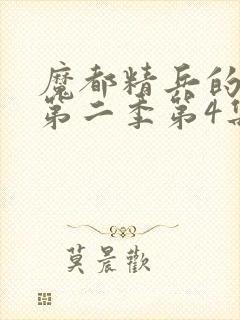 魔都精兵的
第二季第4集
莫晨欢